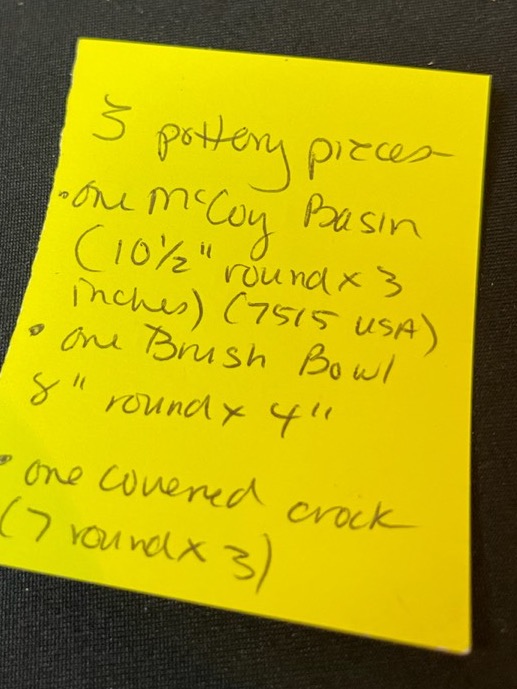 3 pottery pieces
• one McCoy Basin
(10 1/2" round x 3
inches) (7515 USA)
• one Brush Bowl
8" round x 4"
• one covered crock
(7 round x 3)